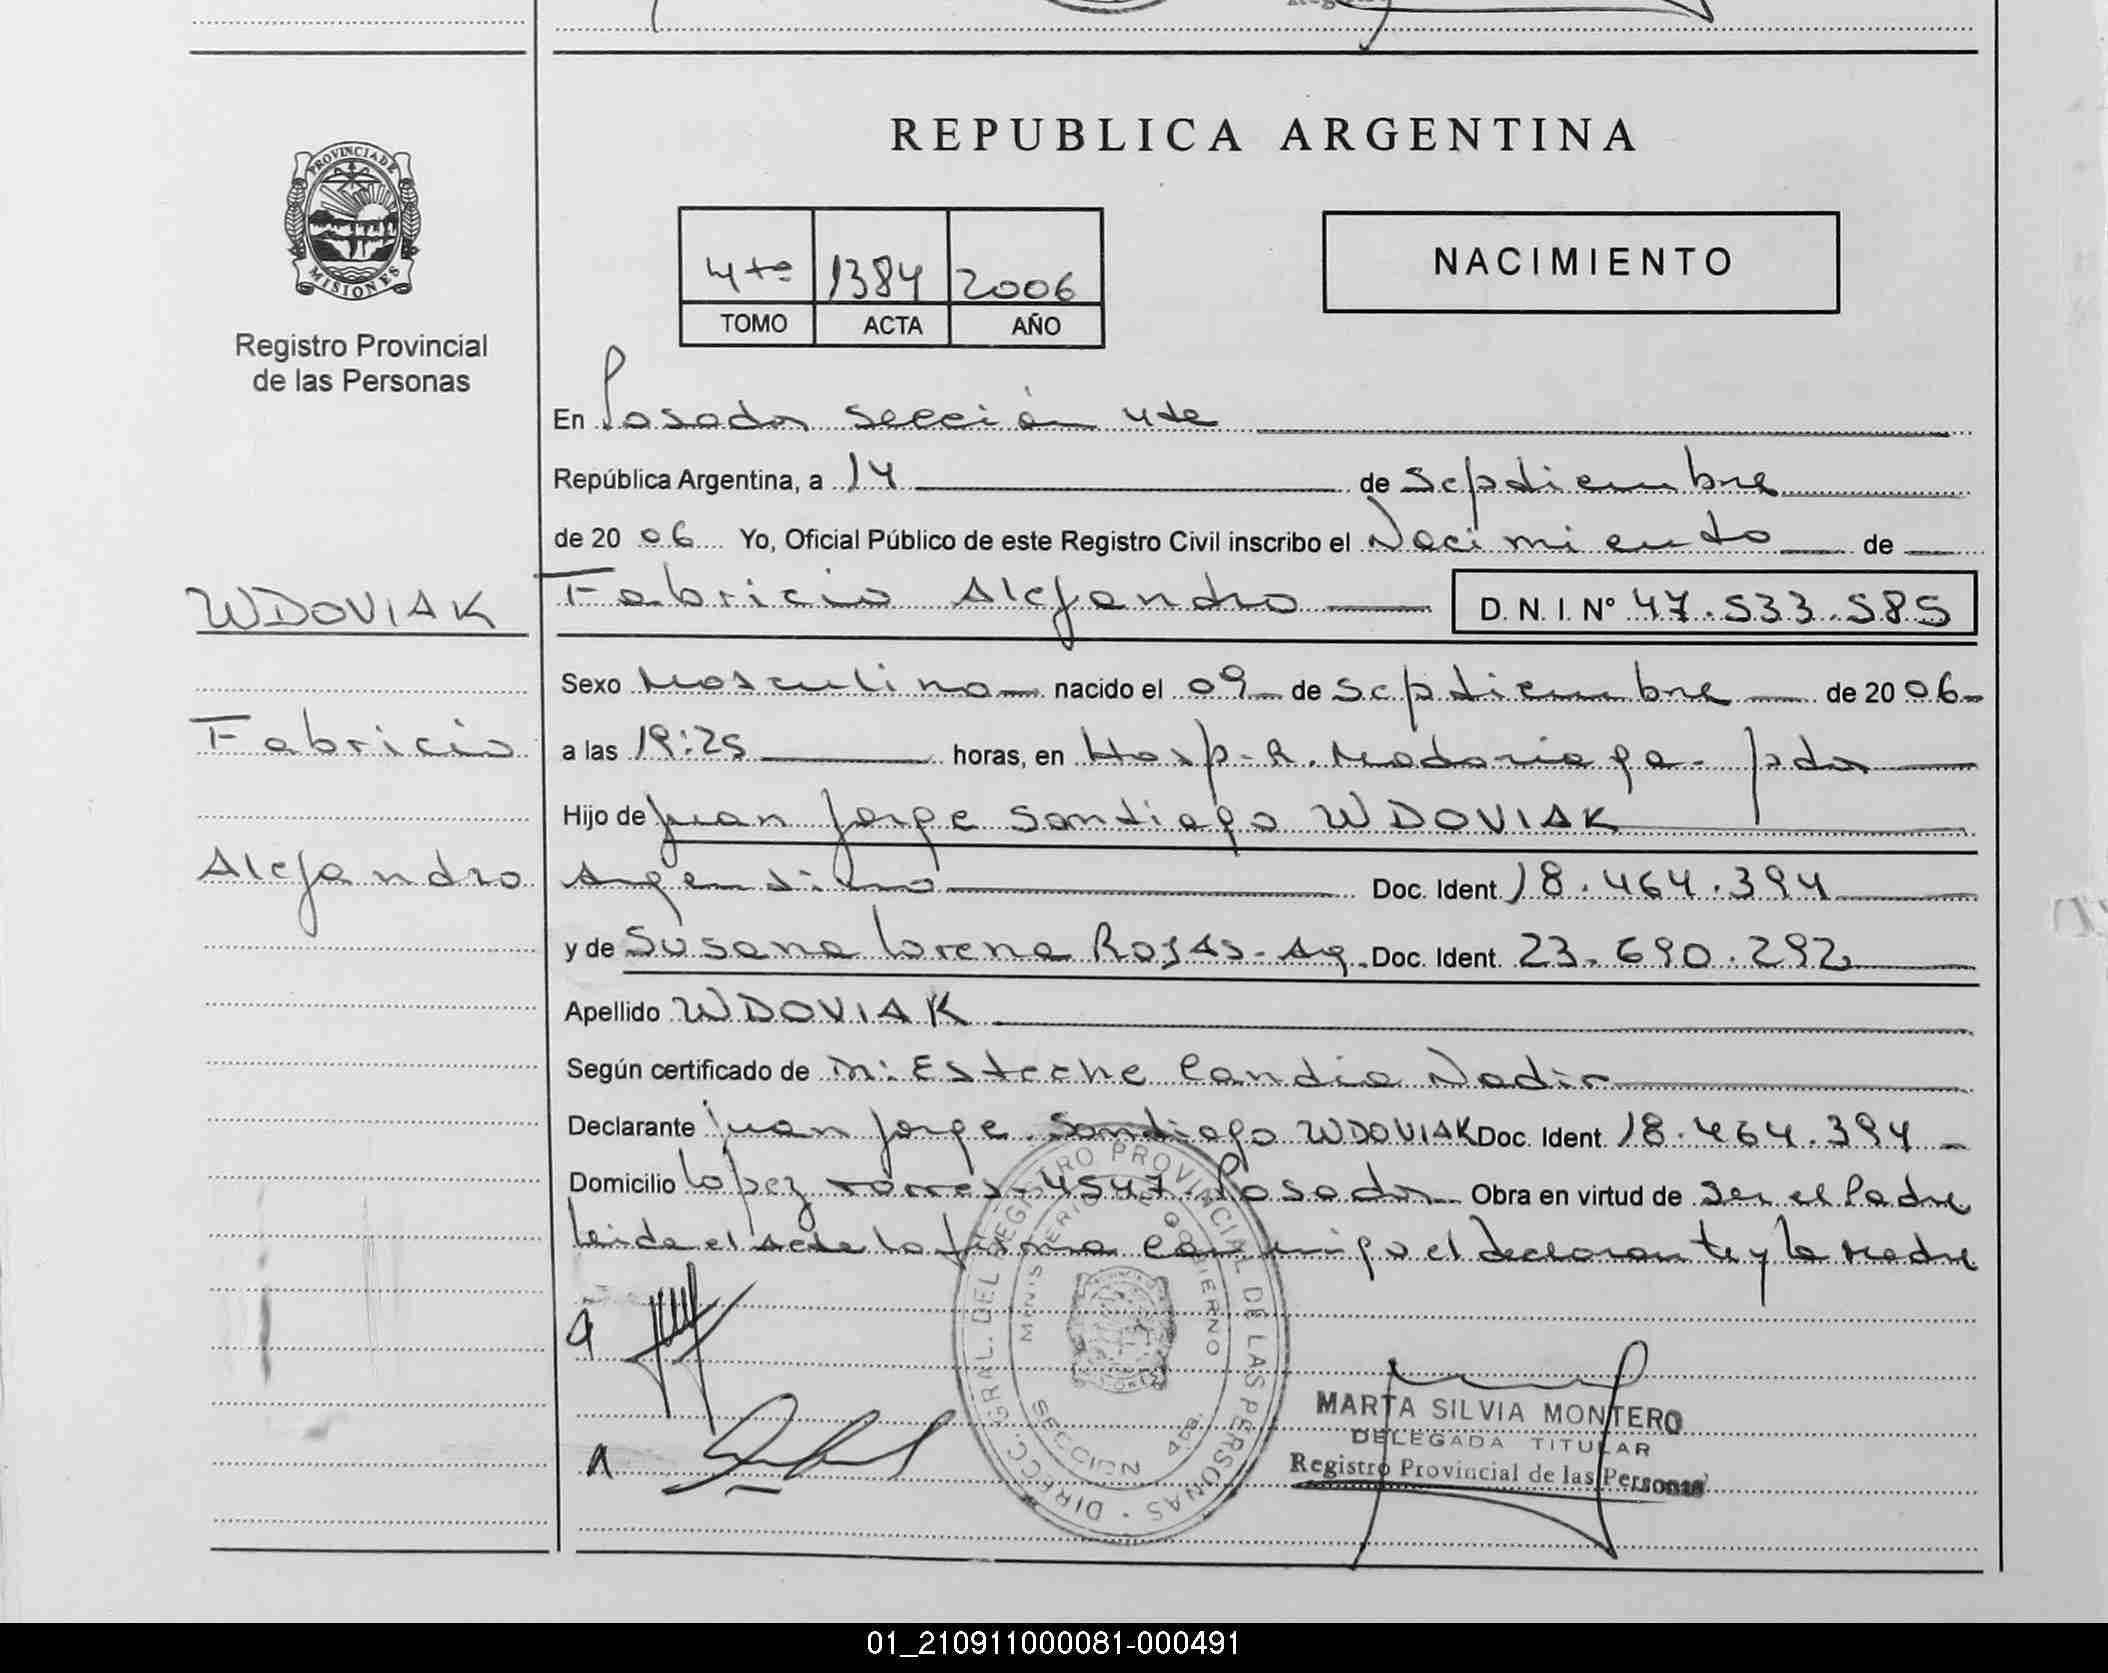 REPUBLICA ARGENTINA
PROVINCIA DE
MISIONES
Registro Provincial
de las Personas
4to 1384 2006
TOMO ACTA AÑO
NACIMIENTO
En Posadas sección 4ta
República Argentina, a 14 de septiembre
de 2006 Yo, Oficial Público de este Registro Civil inscribo el Nacimiento de
WDOVIAK
Fabricio Alejandro D. N. I. Nº 47.533.585
Sexo Masculino nacido el 09 de septiembre de 2006
Fabricio
a las 19:25 horas, en Hosp. R. Madariaga - pdas
Hijo de Juan Jorge Santiago WDOVIAK
Alejandro
Argentino Doc. Ident. 18.464.394
y de Susana Lorena ROJAS - Ag. Doc. Ident. 23.690.292
Apellido WDOVIAK
Según certificado de M: Esteche Candia Nadir
Declarante Juan Jorge Santiago WDOVIAK Doc. Ident. 18.464.394
Domicilio Lopez torres - 4547 - Posadas Obra en virtud de ser el Padre
leida el acta la firma conmigo el declarante y la Madre
DIRECC. GRAL. DEL REGISTRO PROVINCIAL DE LAS PERSONAS
MINISTERIO DE GOBIERNO
SECCION 4ta.
MARTA SILVIA MONTERO
DELEGADA TITULAR
Registro Provincial de las Personas
01_210911000081-000491